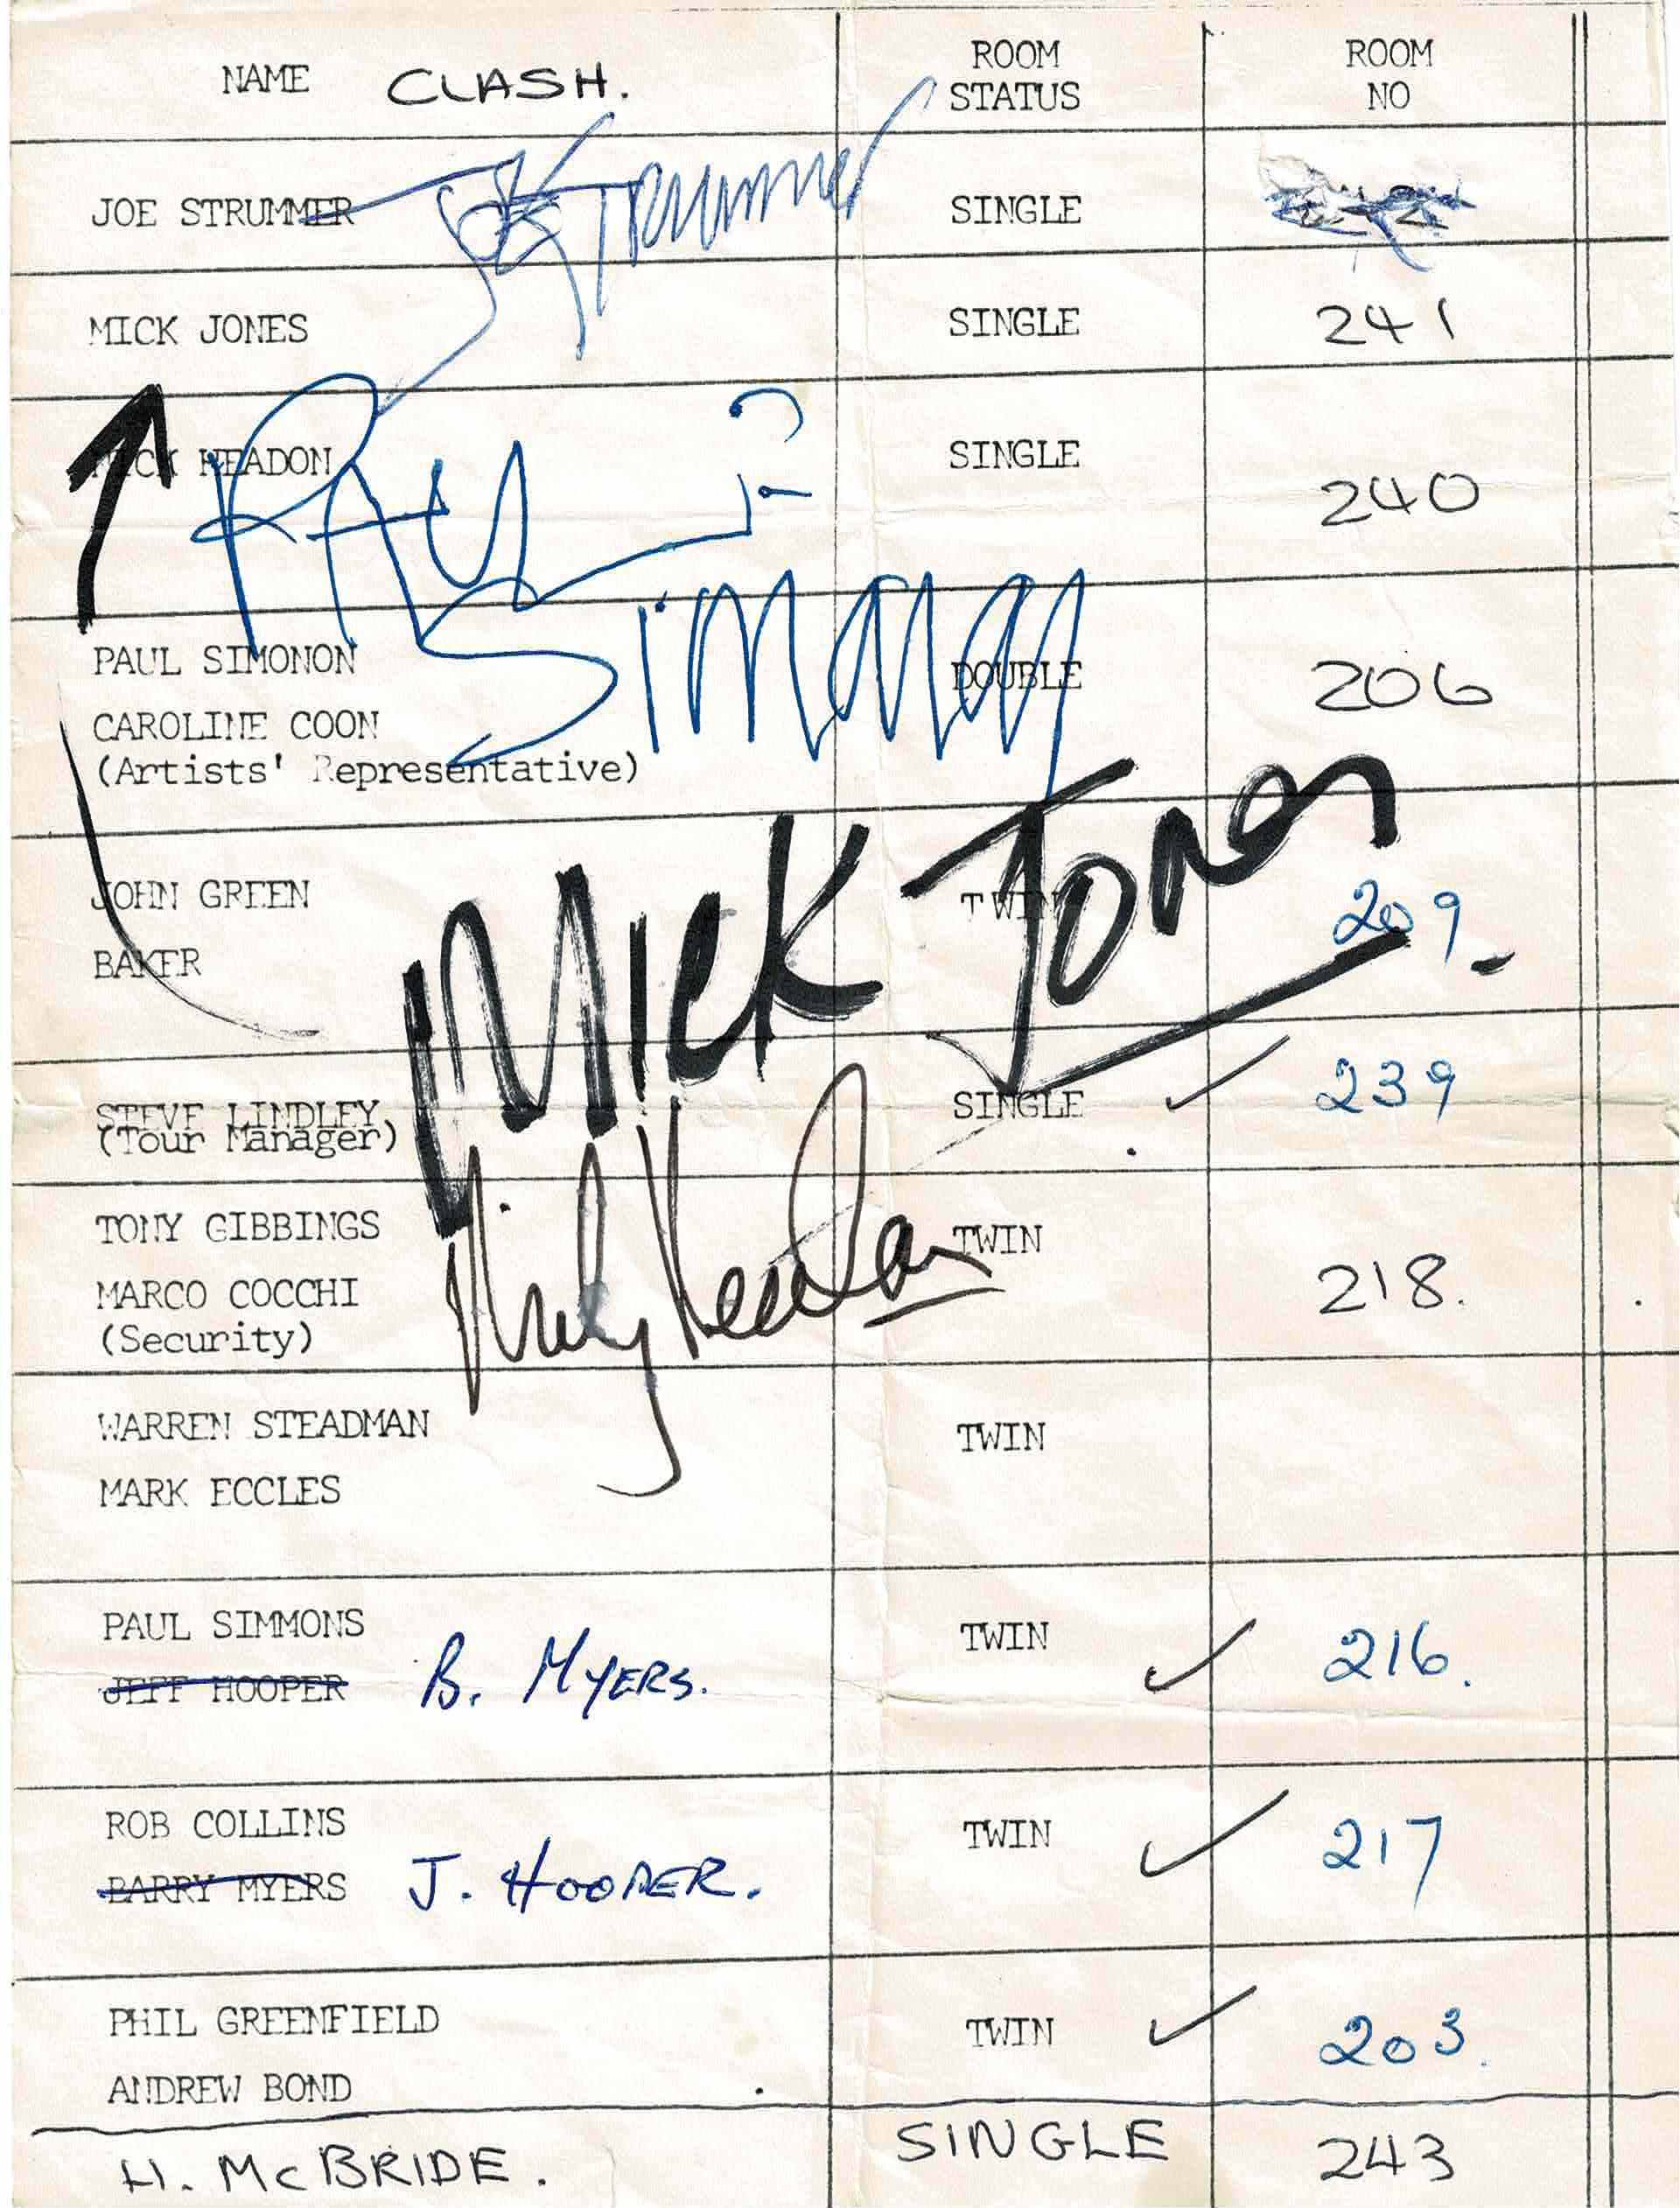 NAME CLASH. ROOM STATUS ROOM NO
JOE STRUMMER Joe Strummer SINGLE
MICK JONES SINGLE 241
MICK HEADON SINGLE 240
PAUL
SIMONON
PAUL SIMONON DOUBLE 206
CAROLINE COON
(Artists' Representative)
MICK JONES
JOHN GREEN TWIN 209.
BAKER
STEVE LINDLEY SINGLE ✓ 239
(Tour Manager)
Nicky Headon
TONY GIBBINGS TWIN 218.
MARCO COCCHI
(Security)
WARREN STEADMAN TWIN
MARK ECCLES
PAUL SIMMONS TWIN ✓ 216.
JEFF HOOPER B. MYERS.
ROB COLLINS TWIN ✓ 217
BARRY MYERS J. HOOPER.
PHIL GREENFIELD TWIN ✓ 203.
ANDREW BOND
H. McBRIDE. SINGLE 243